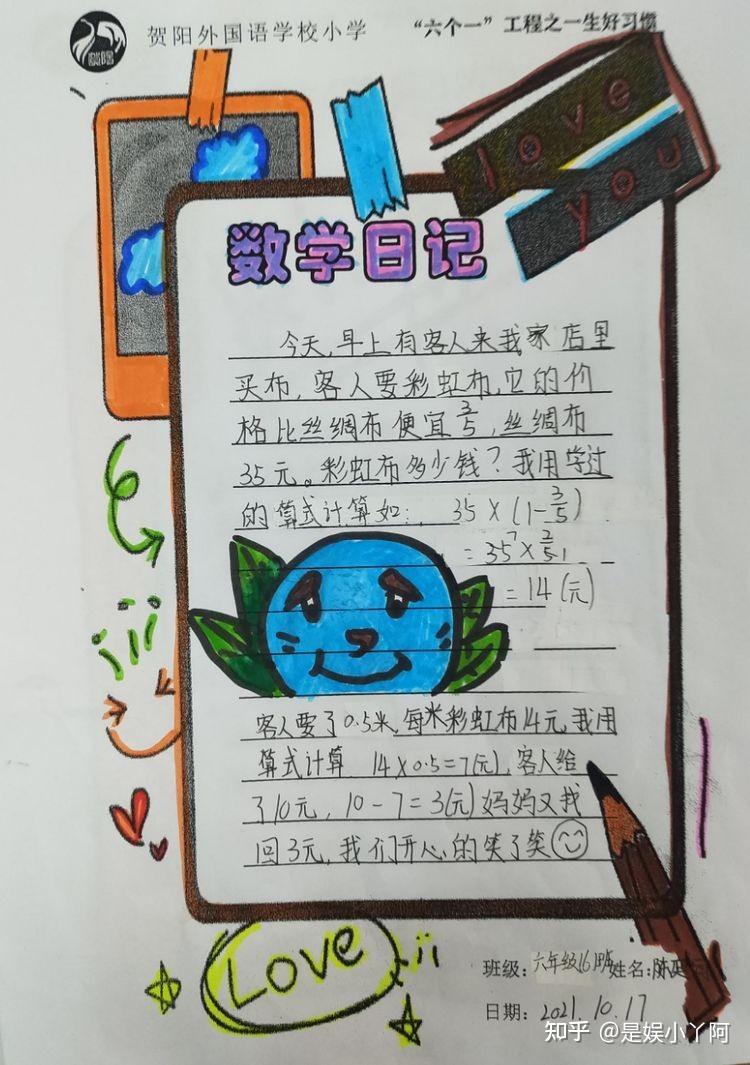 贺阳外国语学校小学
“六个一”工程之一生好习惯
love
you
数学日记
今天,早上有客人来我家店里
买布,客人要彩虹布,它的价
格比丝绸布便宜3/5,丝绸布
35元。彩虹布多少钱?我用学过
的算式计算如:35×(1-3/5)
=35×2/5
=14(元)
客人要了0.5米,每米彩虹布14元,我用
算式计算 14×0.5=7(元),客人给
了10元,10-7=3(元)妈妈又找
回3元,我们开心的笑了笑
Love
班级:六年级(6)班 姓名:陈
日期:2021.10.17
知乎 @是娱小丫阿